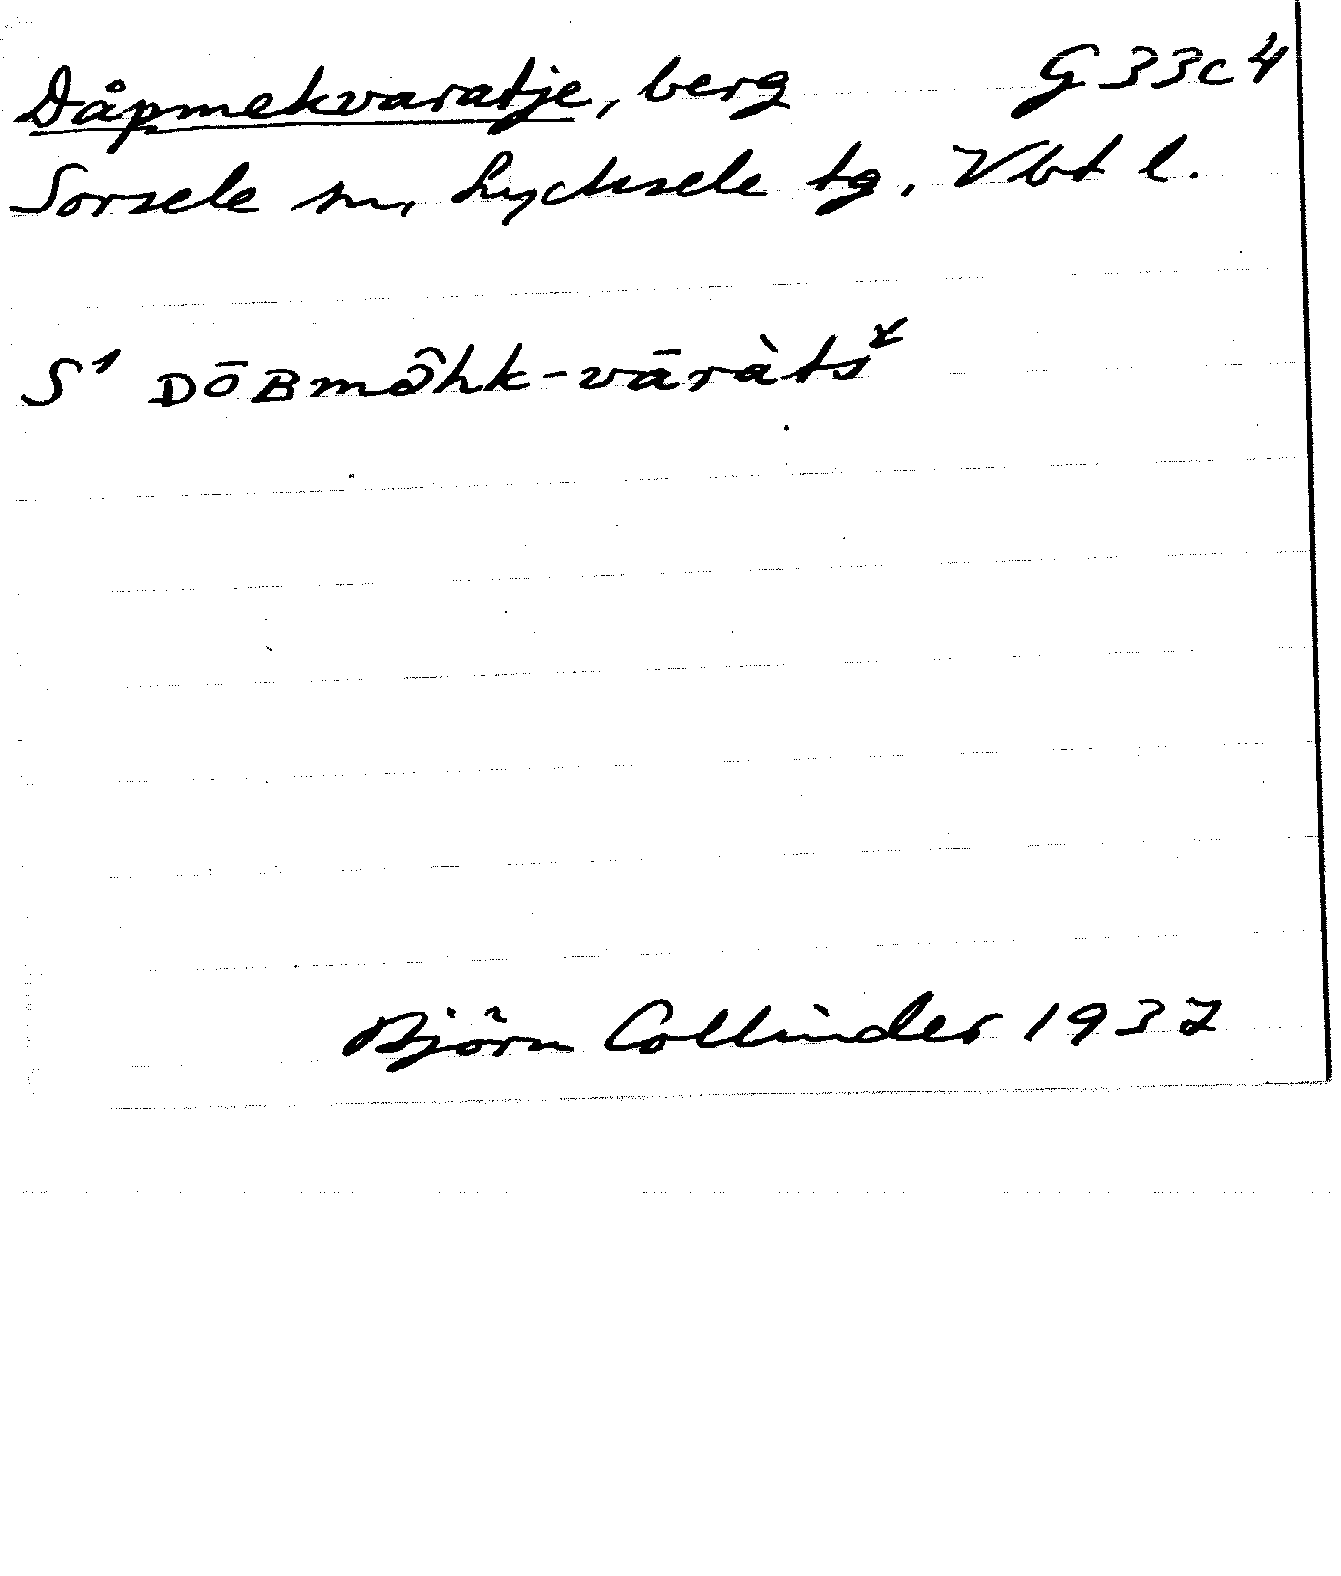 Dåpmekvaratje, berg G 33c4
Sorsele sn, Lycksele tg. Vbt l.
S¹ ᴅōʙmôhk-vāràts
Björn Collinder 1937